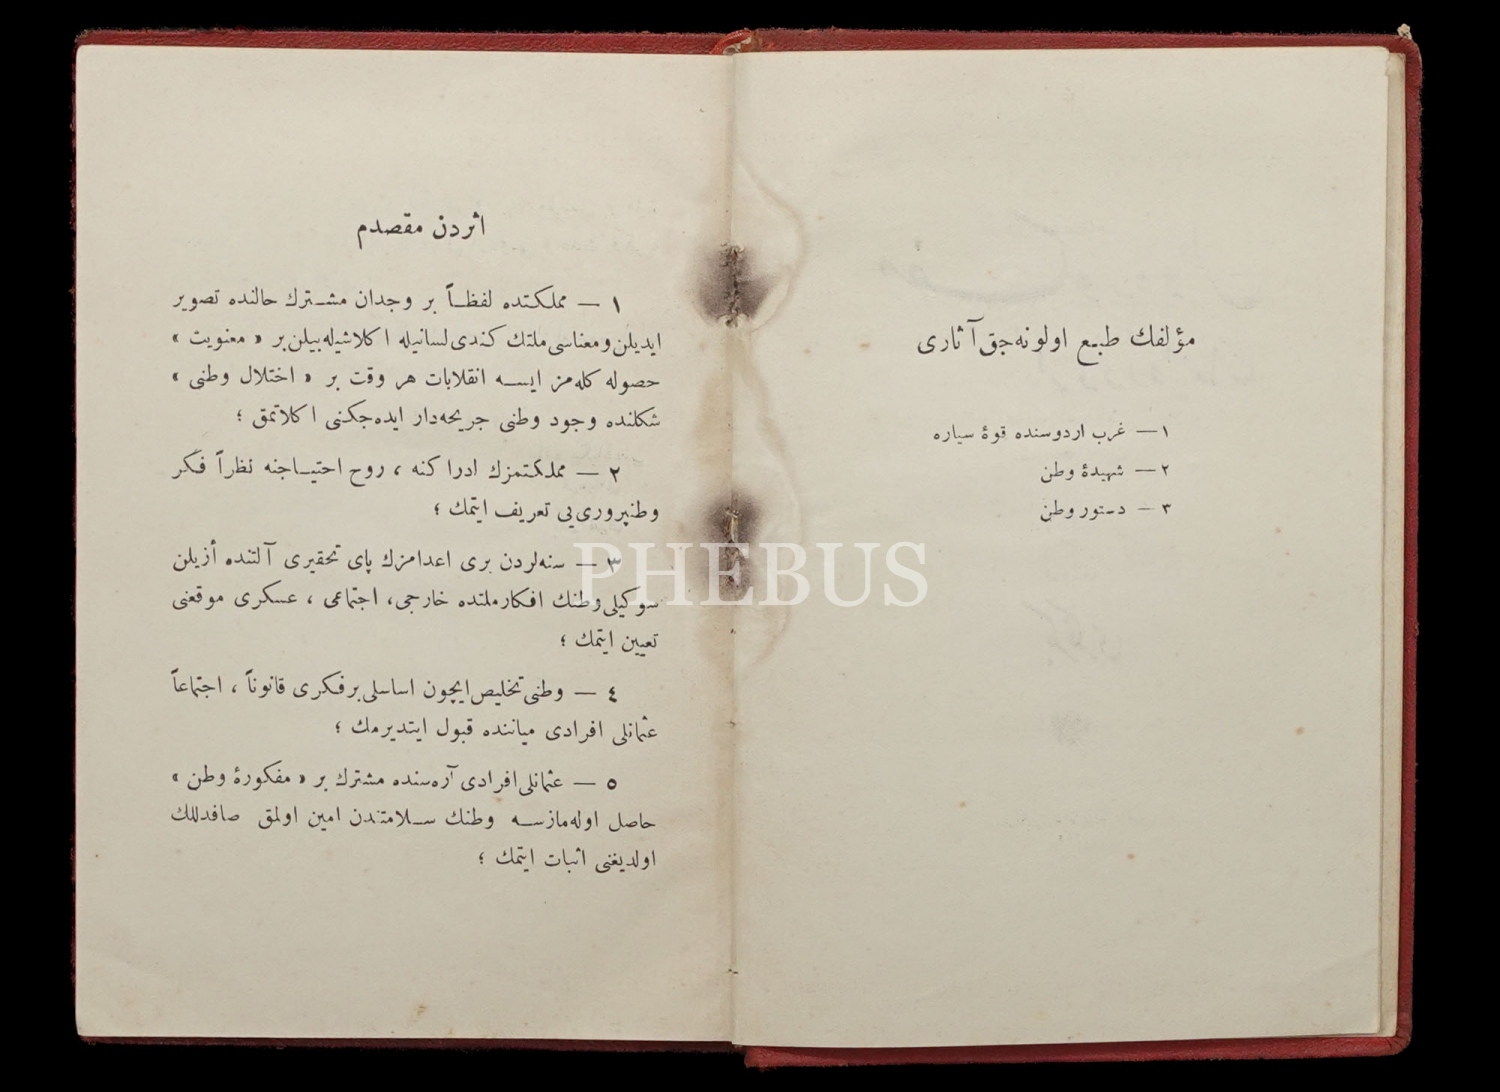 مؤلفك طبع اولونه‌جق آثاری
١— غرب اردوسنده قوۀ سیاره
٢— شهیدۀ وطن
٣— دستور وطن
اثردن مقصدم
١ — مملكتده لفظاً بر وجدان مشترك حالنده تصویر
ایدیلن و معناسی ملتك كندی لسانیله اكلاشیله بیلن بر « معنویت »
حصوله كله‌مز ایسه انقلابات هر وقت بر « اختلال وطنی »
شكلنده وجود وطنی جریحه‌دار ایده‌جكنی اكلاتمق ؛
٢ — مملكتمزك ادراكنه ، روح احتیاجنه نظراً فكر
وطنپروری‌یی تعریف ایتمك ؛
٣ — سنه‌لردن بری اعدامزك پای تحقیری آلتنده أزیلن
سوكیلی وطنك افكار ملتده خارجی، اجتماعی ، عسكری موقعنی
تعیین ایتمك ؛
٤ — وطنی تخلیص ایچون اساسلی بر فكری قانوناً ، اجتماعاً
عثمانلی افرادی میاننده قبول ایتدیرمك ؛
٥ — عثمانلی افرادی آره‌سنده مشترك بر « مفكورۀ وطن »
حاصل اوله‌مازسه وطنك سلامتندن امین اولمق صافدللك
اولدیغنی اثبات ایتمك ؛
PHEBUS